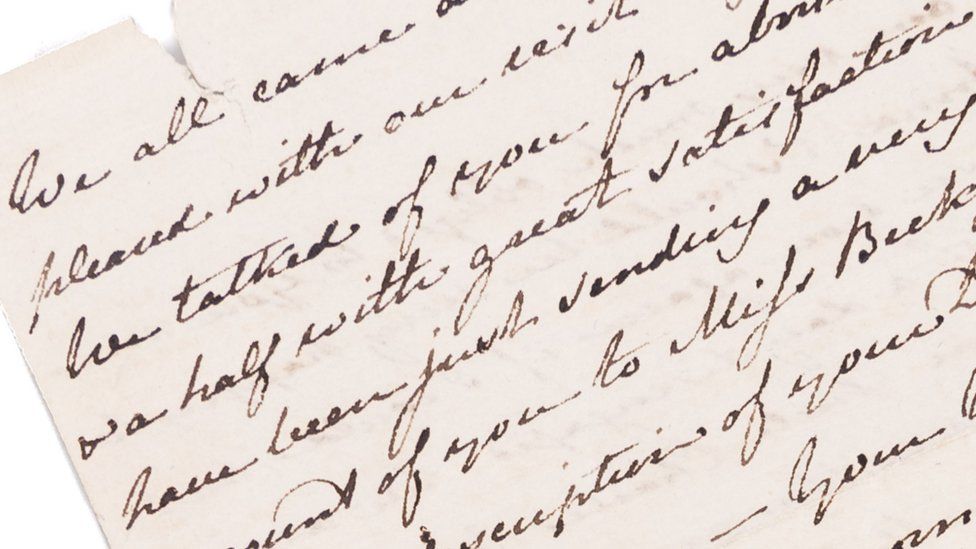 We all came a
pleased with our visit
We talked of you for abou
& a half with great satisfaction
have been just sending a very
count of you to Miss Beck
scription of your D
— Your